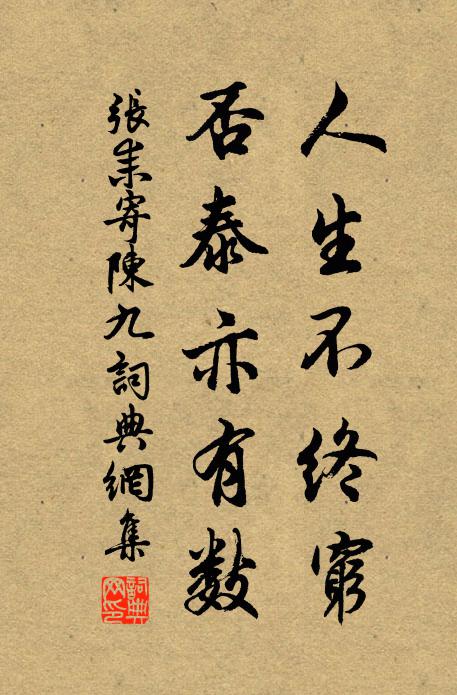 人生不終窮
否泰亦有数
張耒寄陳九詞典網集
詞典网印